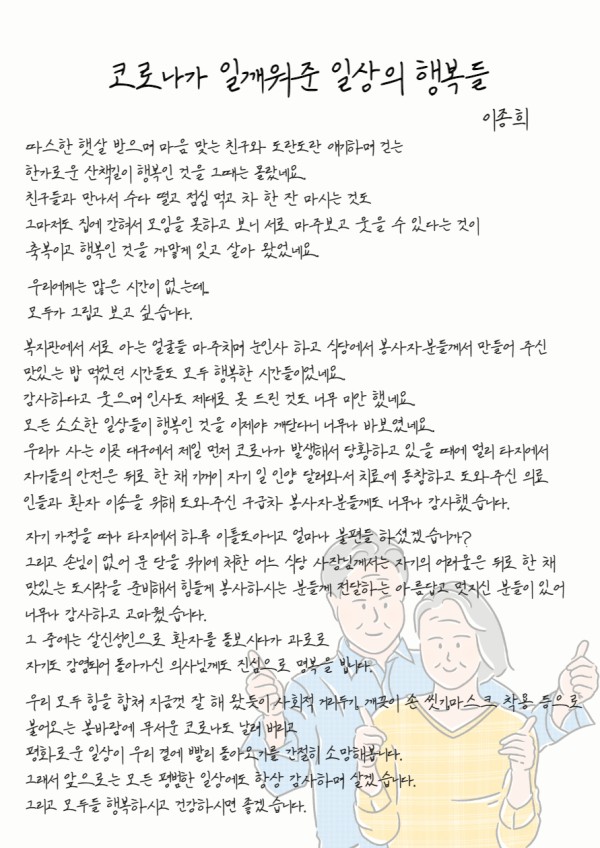 코로나가 일깨워준 일상의 행복들
이종희
따스한 햇살 받으며 마음 맞는 친구와 도란도란 얘기하며 걷는
한가로운 산책길이 행복인 것을 그때는 몰랐네요.
친구들과 만나서 수다 떨고 점심 먹고 차 한 잔 마시는 것도
그마저도 집에 갇혀서 모임을 못하고 보니 서로 마주보고 웃을 수 있다는 것이
축복이고 행복인 것을 까맣게 잊고 살아 왔었네요.
우리에게는 많은 시간이 없는데..
모두가 그립고 보고 싶습니다.
복지관에서 서로 아는 얼굴들 마주치며 눈인사 하고 식당에서 봉사자분들께서 만들어 주신
맛있는 밥 먹었던 시간들도 모두 행복한 시간들이었네요.
감사하다고 웃으며 인사도 제대로 못 드린 것도 너무 미안 했네요.
모든 소소한 일상들이 행복인 것을 이제야 깨닫다니 너무나 바보였네요.
우리가 사는 이곳 대구에서 제일 먼저 코로나가 발생해서 당황하고 있을 때에 멀리 타지에서
자기들의 안전은 뒤로 한 채 기꺼이 자기 일 인양 달려와서 치료에 동참하고 도와주신 의료
인들과 환자 이송을 위해 도와주신 구급차 봉사자분들께도 너무나 감사했습니다.
자기 가정을 떠나 타지에서 하루 이틀도아니고 얼마나 불편들 하셨겠습니까?
그리고 손님이 없어 문 닫을 위기에 처한 어느 식당 사장님께서는 자기의 어려움은 뒤로 한 채
맛있는 도시락을 준비해서 힘들게 봉사하시는 분들께 전달하는 아름답고 멋지신 분들이 있어
너무나 감사하고 고마웠습니다.
그 중에는 살신성인으로 환자를 돌보시다가 과로로
자기도 감염되어 돌아가신 의사님께도 진심으로 명복을 빕니다.
우리 모두 힘을 합쳐 지금껏 잘 해 왔듯이 사회적 거리두기, 깨끗이 손 씻기마스크 착용 등으로
불어오는 봄바람에 무서운 코로나도 날려 버리고
평화로운 일상이 우리 곁에 빨리 돌아오기를 간절히 소망해봅니다.
그래서 앞으로는 모든 평범한 일상에도 항상 감사하며 살겠습니다.
그리고 모두들 행복하시고 건강하시면 좋겠습니다.